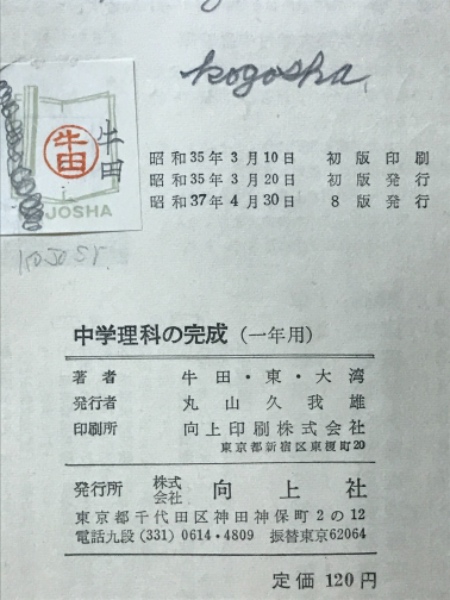 kogosha
牛田
牛田
JOSHA
昭和35年3月10日 初版印刷
昭和35年3月20日 初版発行
昭和37年4月30日 8版発行
中学理科の完成(一年用)
著者 牛田・東・大湾
発行者 丸山久我雄
印刷所 向上印刷株式会社
東京都新宿区東榎町20
発行所 株式会社 向上社
東京都千代田区神田神保町2の12
電話九段(331)0614・4809 振替東京62064
定価120円